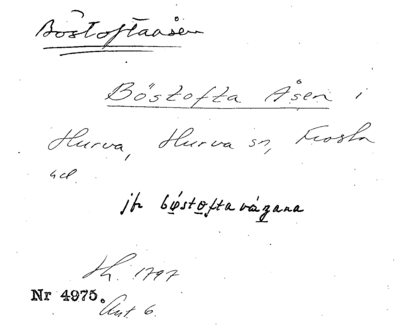 Böstoftaåsen
Böstofta Åsen i
Hurva, Hurva sn, Frosta
hd.
jfr bøstofta vägana
H. 1797
Nr 4975.
Ant. 6.